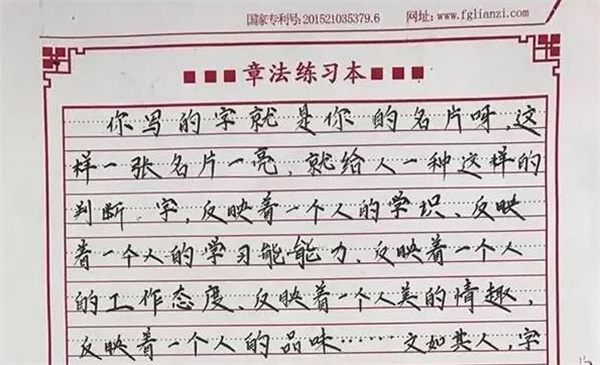 国家专利号:201521035379.6 网址: www.fglianzi.com
章法练习本
你写的字就是你的名片呀,这
样一张名片一亮、就给人一种这样的
判断.字,反映着一个人的学识、反映
着一个人的学习能能力、反映着一个人
的工作态度、反映着一个人美的情趣、
反映着一个人的品味……文如其人,字